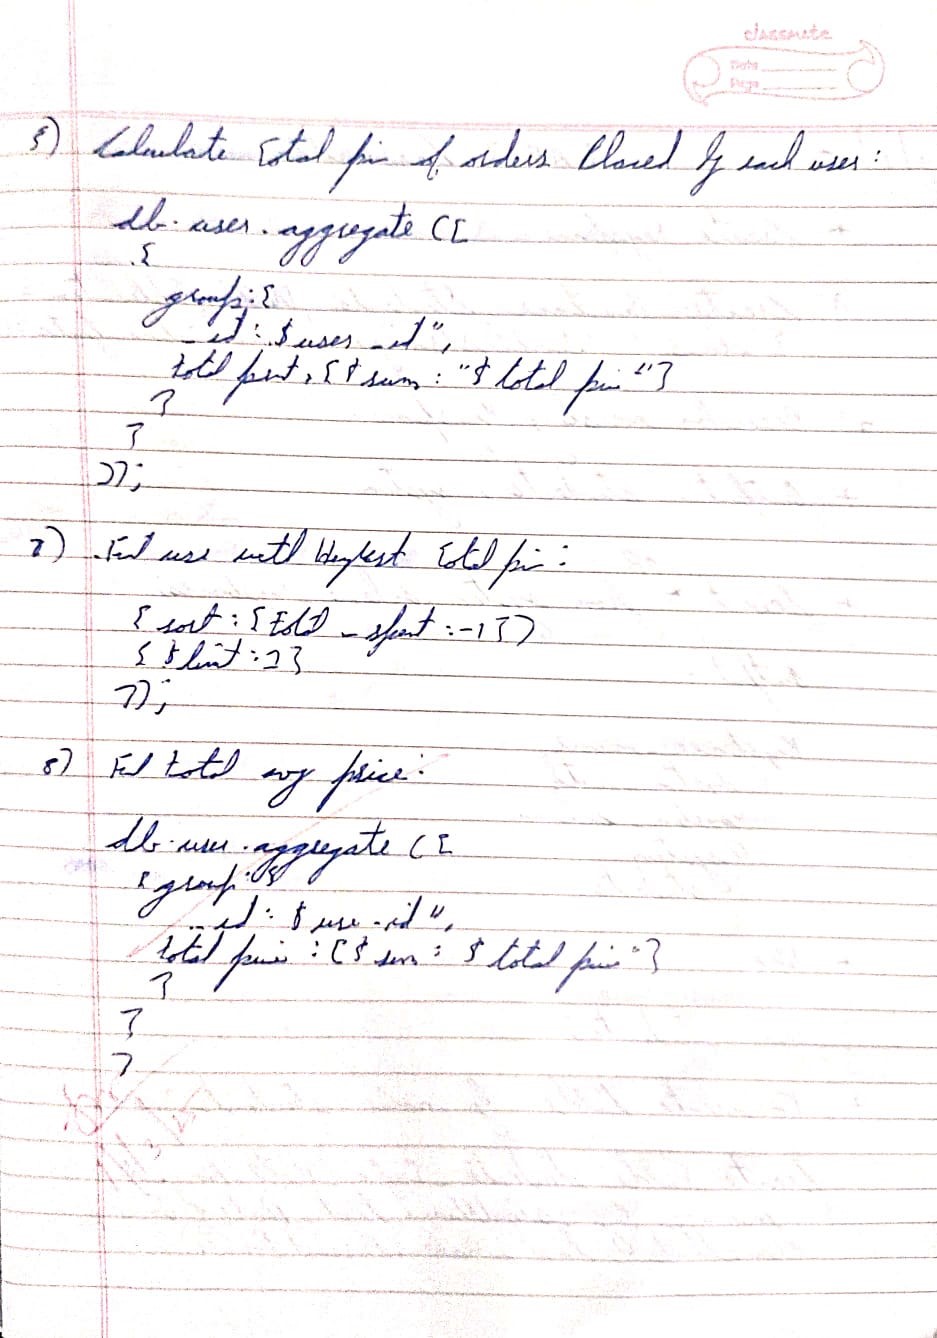 classmate
Date
Page
5) Calculate Total pri of orders Placed by each user:
db.user.aggregate ([
{
group:{
_id: $user_id",
total , {$sum : "$total pri"}
}
}
]);
7) Find use with Highest Total pri:
{ sort : { Total _ spent :-1 })
{ $limit : 1 }
]);
8) Find total avg price:
db.user.aggregate ([
{ group: {
_id: $use_id",
total price : {$ sum : $ total price"}
}
}
]